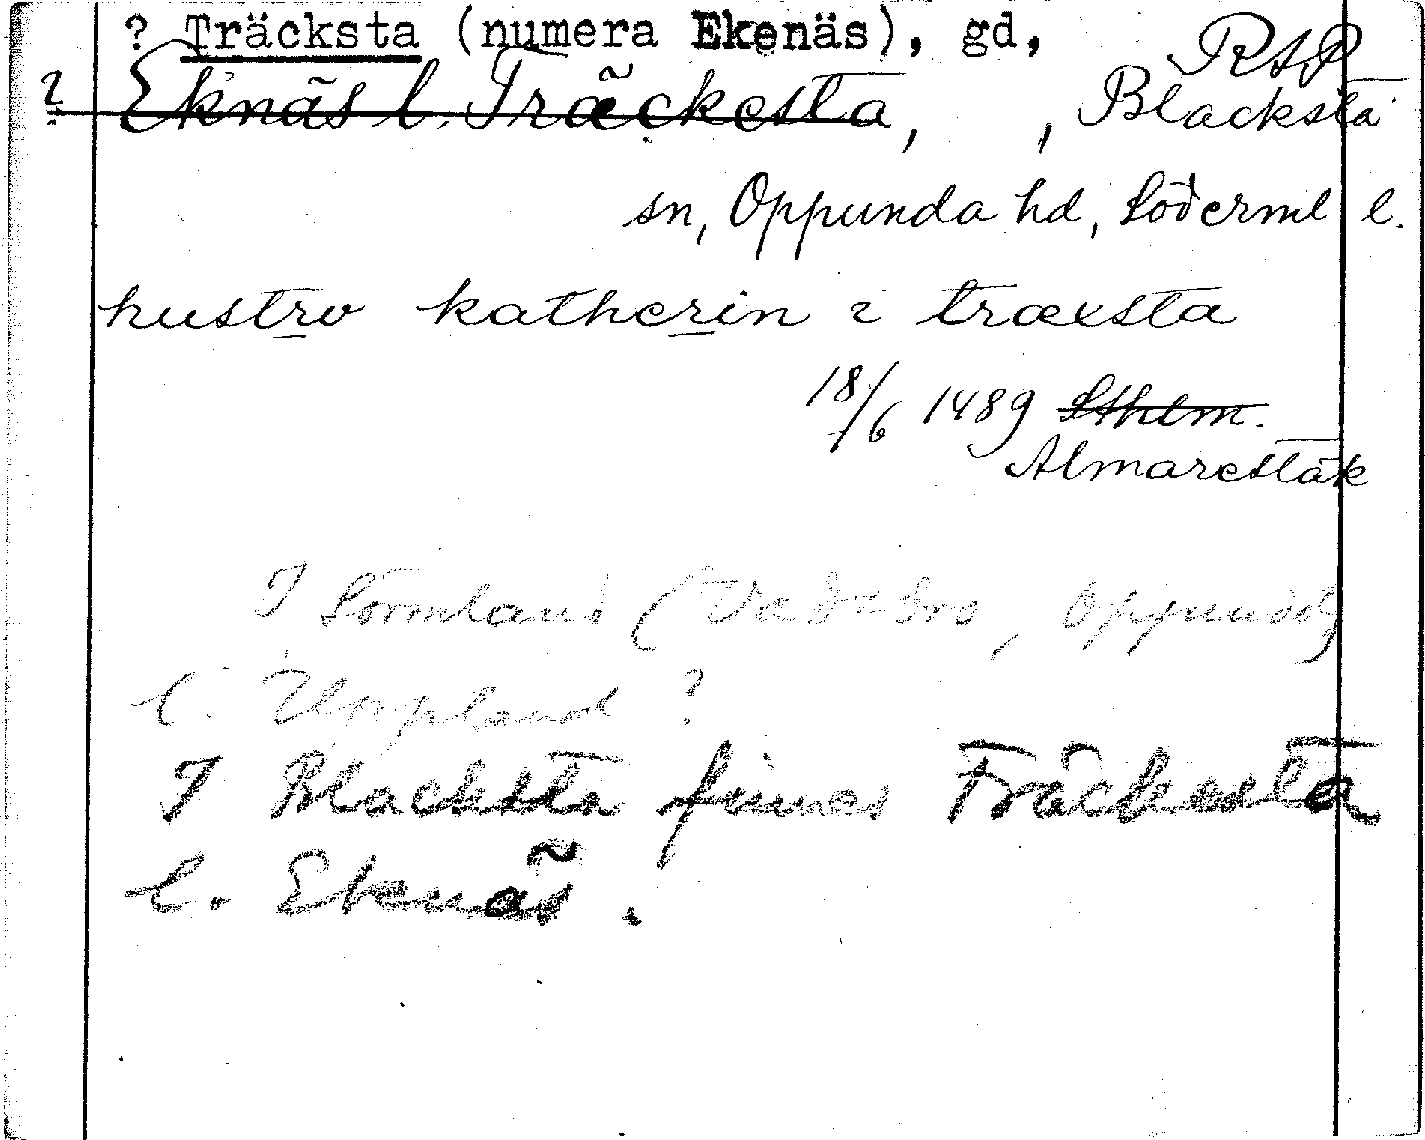 ? Träcksta (numera Ekenäs), gd,
RAP
? Eknäs l. Träckesta, , Blacksta
sn, Oppunda hd, Söderml l.
hustrv katherin i træxsta
18/6 1489 Sthlm.
Almarestäk
I Sörmland ( Oppunda)
l. Uppland ?
I Blacksta finnes Träckesta
l. Eknäs.